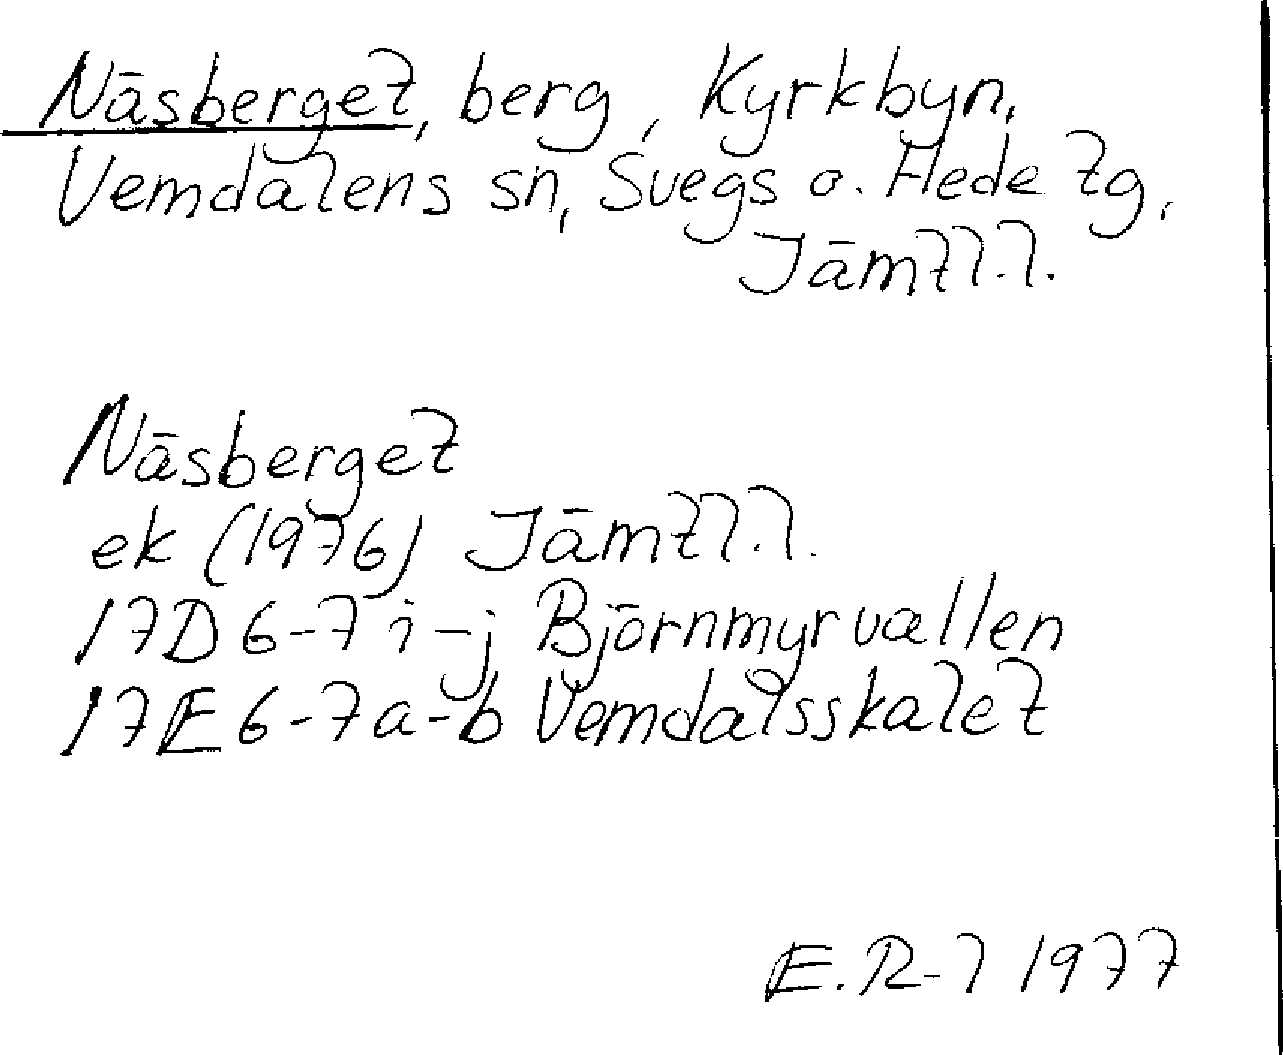 Näsberget, berg, Kyrkbyn,
Vemdalens sn, Svegs o. Hede tg,
Jämtl.l.
Näsberget
ek (1976) Jämtl.l.
17D 6-7 i-j Björnmyrvallen
17E 6-7 a-b Vemdalsskalet
E. R-l 1977